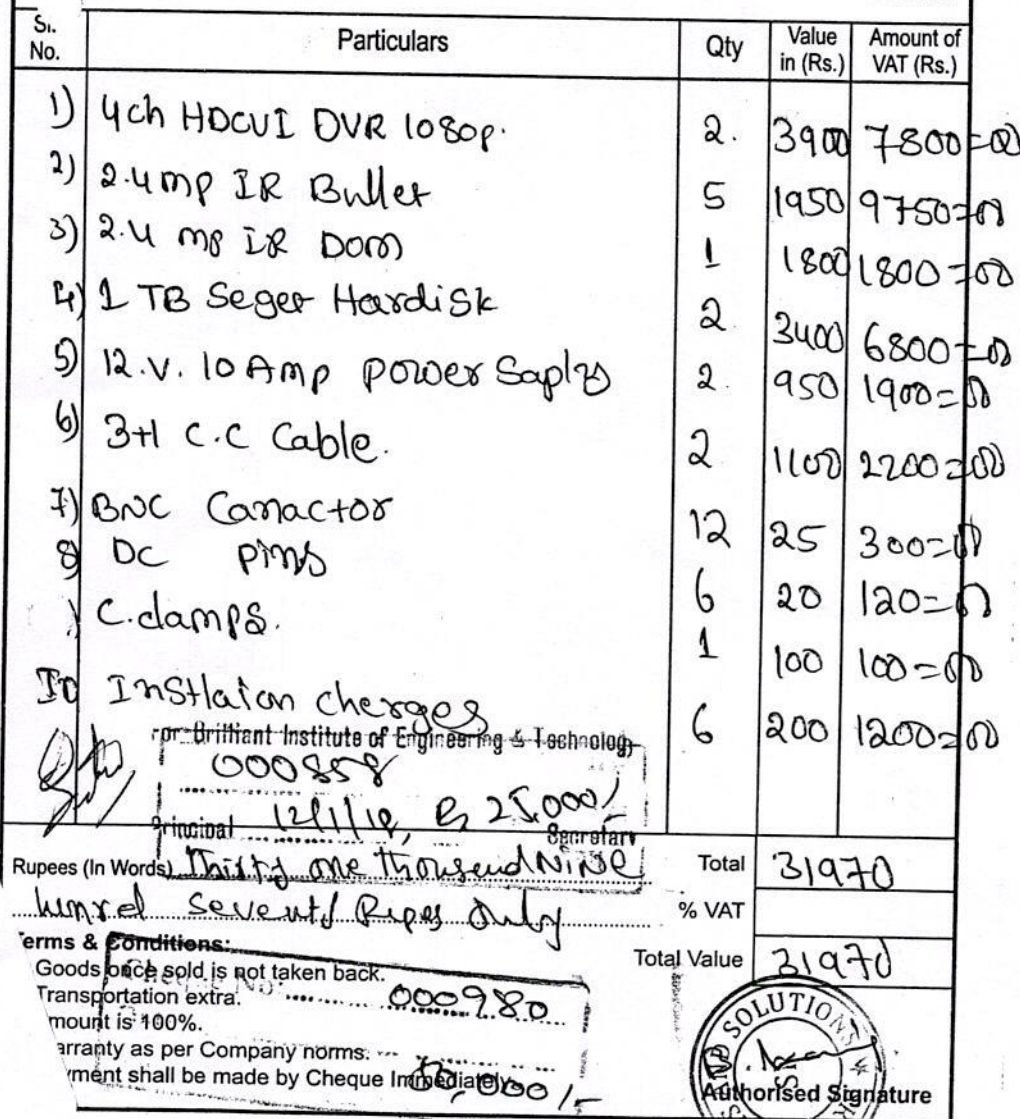 Sl. No. Particulars Qty Value in (Rs.) Amount of VAT (Rs.)
1) 4ch HDCVI DVR 1080p. 2. 3900 7800=00
2) 2.4mp IR Bullet 5 1950 9750=00
3) 2.4 mp IR Dom 1 1800 1800=00
4) 1 TB Seget Hardisk 2 3400 6800=00
5) 12.V. 10 Amp power Saply 2. 950 1900=00
6) 3+1 C.C Cable. 2 1100 2200=00
7) BNC Canactor 12 25 300=00
8 DC pins 6 20 120=00
) C.clamps. 1 100 100=00
10 Instlaion cherges 6 200 1200=00
For Brilliant Institute of Engineering & Technology
000858
12/1/18, 25,000/-
Principal Secretary
Rupees (In Words) Thirty one thousend Nine Total 31970
hunred seventy Rupes Only % VAT
Terms & Conditions: Total Value 31970
Goods once sold is not taken back.
Cheque No. 000980
Transportation extra.
mount is 100%.
arranty as per Company norms.
yment shall be made by Cheque Immediately.
AND SOLUTIONS
Authorised Signature